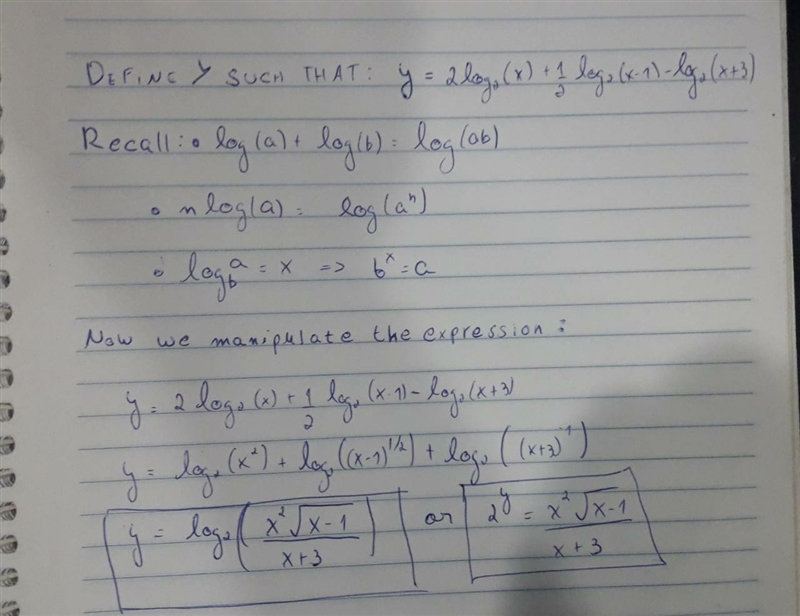 DEFINE Y SUCH THAT: y = 2log₂(x) + 1/2 log₂(x-1) - log₂(x+3)
Recall: • log(a) + log(b) = log(ab)
• n log(a) = log(aⁿ)
• log_b^a = x => b^x = a
Now we manipulate the expression:
y = 2 log₂(x) + 1/2 log₂(x-1) - log₂(x+3)
y = log₂(x²) + log₂((x-1)^1/2) + log₂((x+3)^-1)
y = log₂(x²√(x-1) / (x+3)) or 2^y = x²√(x-1) / (x+3)